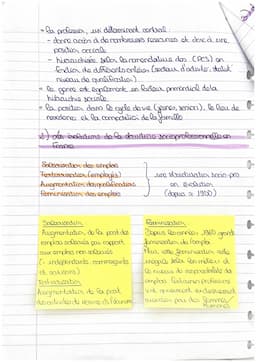 • La profession, un déterminant central :
- donne accès à de nombreuses ressources et donc à une position sociale
- hiérarchisée selon la nomenclature des (PCS) en fonction de différents critères (secteur d'activité, statut, niveau de qualification).
• Le genre est également un facteur primordial de la hiérarchie sociale
• La position dans le cycle de vie (jeunes, seniors), le lieu de résidence et la composition de la famille
2) Les évolutions de la structure socioprofessionnelle en France
Salarisation des emplois
Tertiarisation (emplois)
Augmentation des qualifications
Féminisation des emplois
une structuration socio-pro en évolution (depuis ≈ 1950)
Salarisation
Augmentation de la part des emplois salariés par rapport aux emplois non salariés
(- indépendants commerçants et artisans)
Tertiarisation
Augmentation de la part
Féminisation
Depuis les années 1960 grande féminisation de l'emploi
Mais, cette féminisation reste inégale selon les milieux et le niveau de responsabilité des emplois